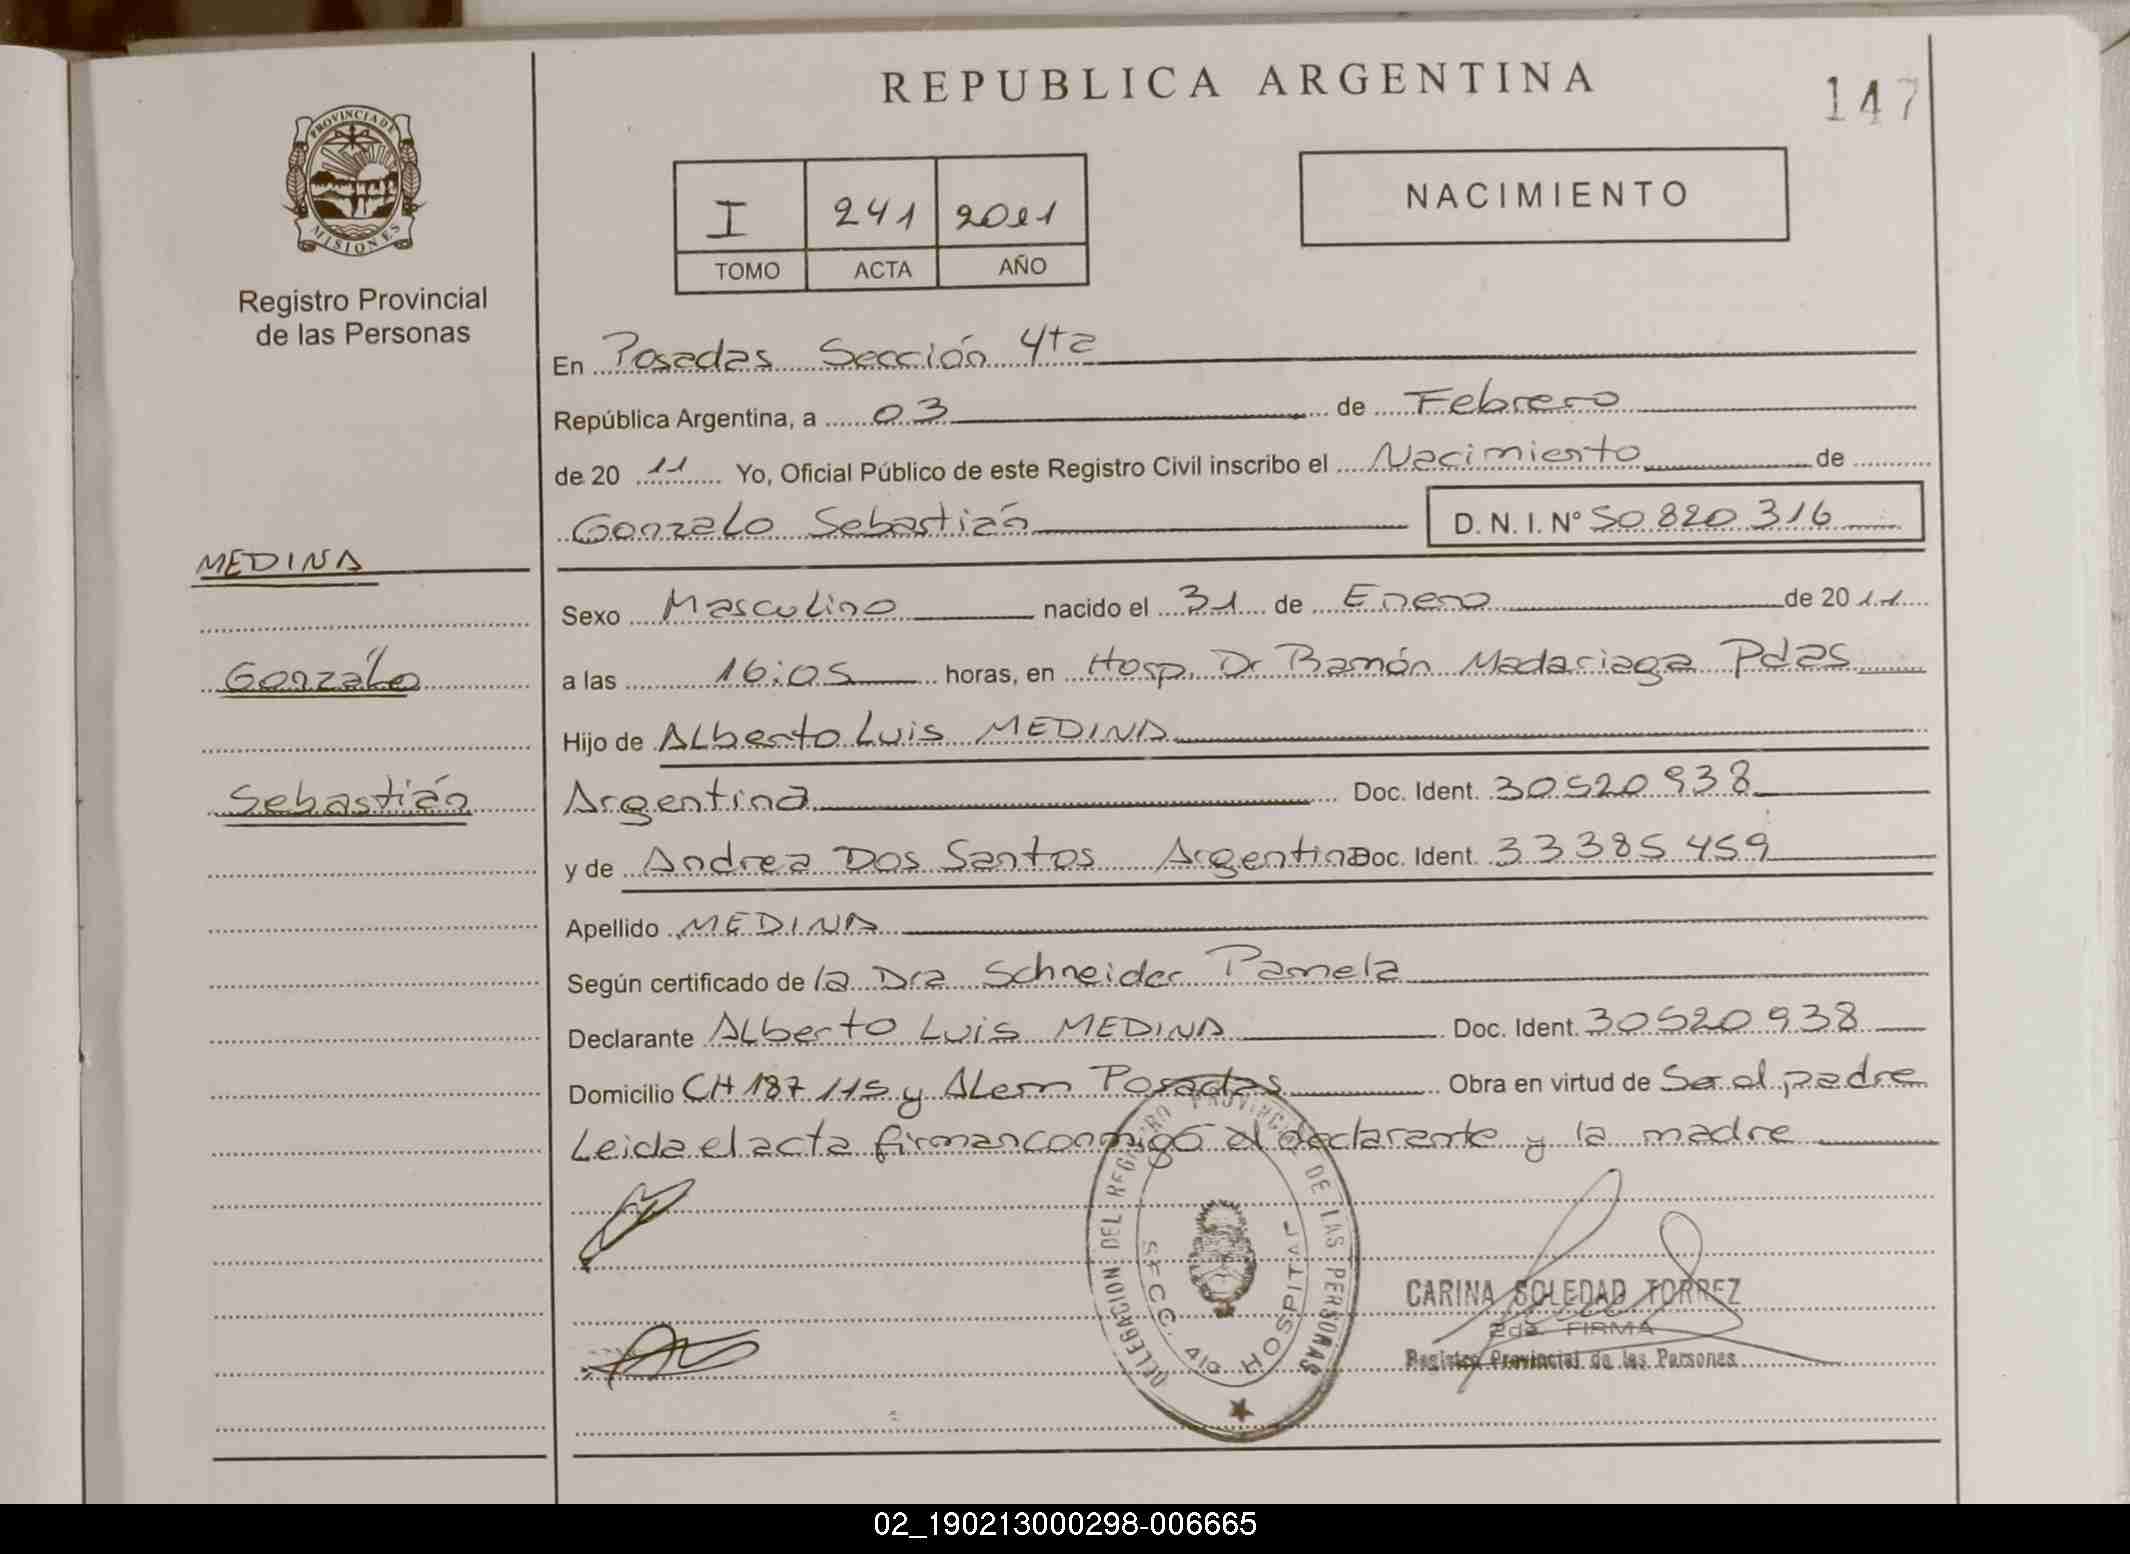 REPUBLICA ARGENTINA
147
PROVINCIA DE
MISIONES
Registro Provincial
de las Personas
I 241 2011
TOMO ACTA AÑO
NACIMIENTO
En Posadas Sección 4ta
República Argentina, a 03 de Febrero
de 20 11 Yo, Oficial Público de este Registro Civil inscribo el Nacimiento de
Gonzalo Sebastián D. N. I. N° 50 820 316
MEDINA
Gonzalo
Sebastián
Sexo Masculino nacido el 31 de Enero de 20 11
a las 16:05 horas, en Hosp. Dr Ramón Madariaga Pdas
Hijo de Alberto Luis MEDINA
Argentina Doc. Ident. 30520938
y de Andrea Dos Santos Argentina Doc. Ident. 33385459
Apellido MEDINA
Según certificado de la Dra Schneider Pamela
Declarante Alberto Luis MEDINA Doc. Ident. 30520938
Domicilio CH 187 115 y Alem Posadas Obra en virtud de Ser el padre
Leida el acta firman conmigo el declarante y la madre
DELEGACION DEL REGISTRO PROVINCIAL DE LAS PERSONAS
SECC. 4ta HOSPITAL
CARINA SOLEDAD TORREZ
2da. FIRMA
Registro Provincial de las Personas
02_190213000298-006665